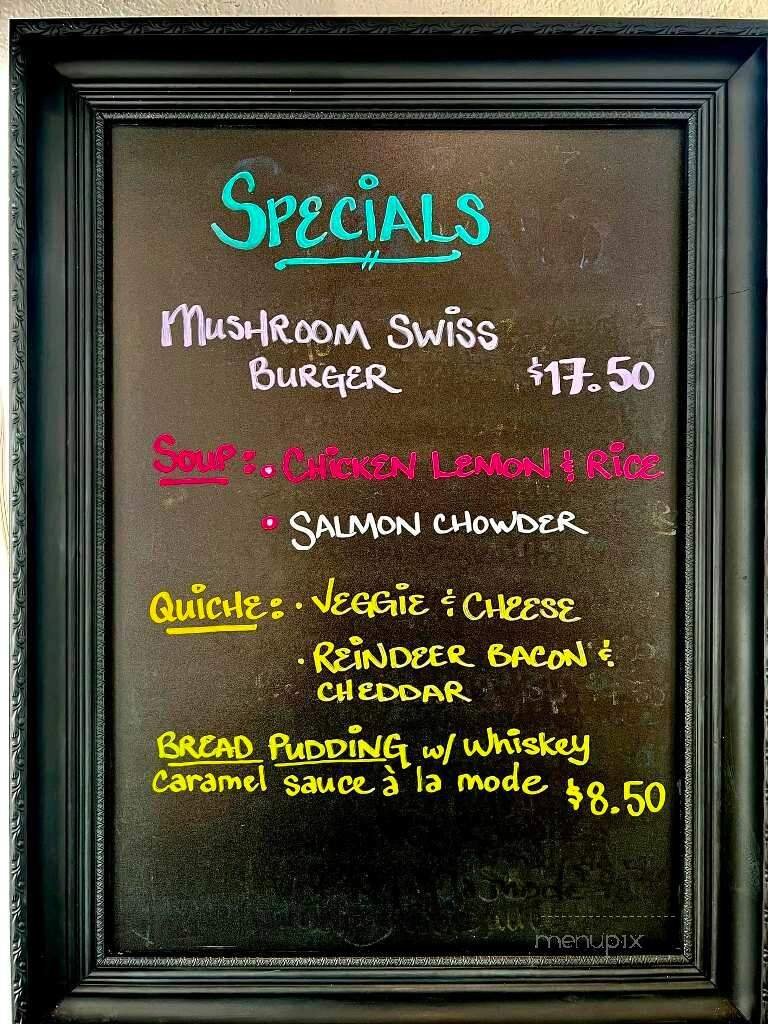 SPECiALS
MUSHROOM SWiSS
BURGER $17.50
SOUP: • CHiCKEN LEMON & RiCE
• SALMON CHOWDER
QUiCHE: • VEGGiE & CHEESE
• REiNDEER BACON &
CHEDDAR
BREAD PUDDING w/ whiskey
caramel sauce à la mode $8.50
à la mode
menupix